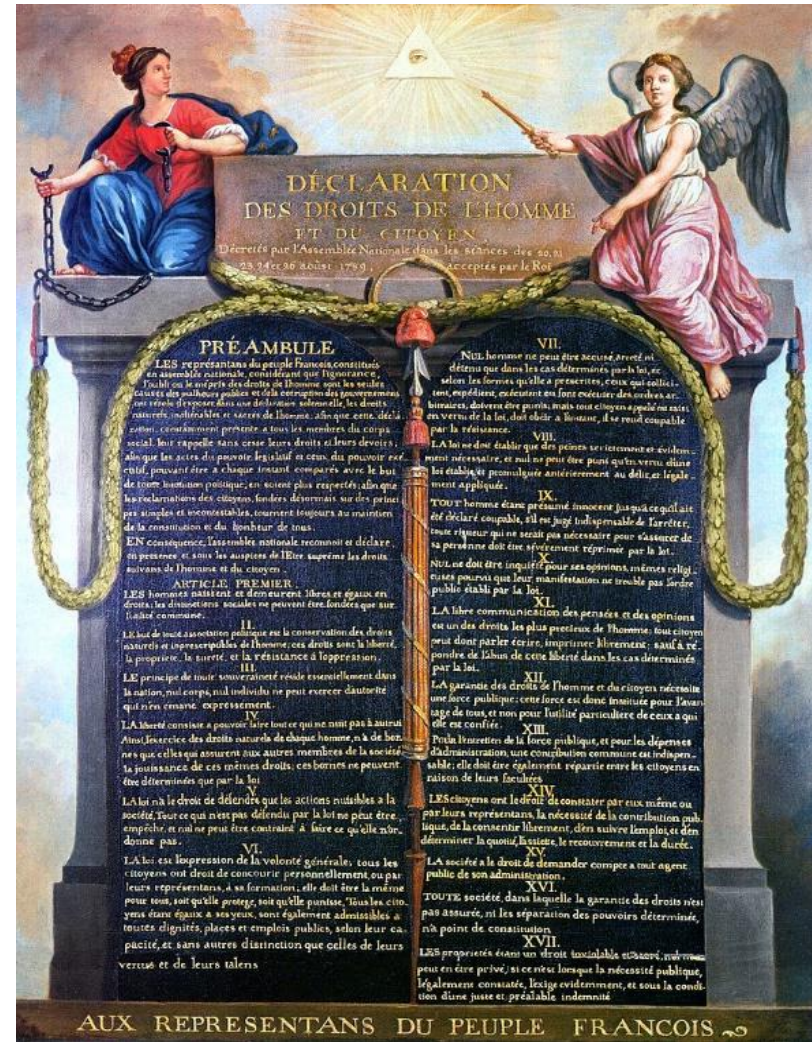 DÉCLARATION
DES DROITS DE L'HOMME
ET DU CITOYEN.
Décretés par l'Assemblée Nationale dans les séances des 20, 21
23, 24 et 26 août 1789, acceptés par le Roi
PRÉAMBULE
LES représantans du peuple François, constitués
en assemblée nationale, considérant que l'ignorance,
l'oubli ou le mépris des droits de l'homme sont les seules
causes des malheurs publics et de la corruption des gouvernemens
ont résolu d'exposer dans une déclaration solemnelle, les droits
naturels, inaliénables et sacrés de l'homme; afin que cette décla-
ration, constamment présente a tous les membres du corps
social, leur rappelle sans cesse leurs droits et leurs devoirs;
afin que les actes du pouvoir législatif et ceux du pouvoir exé-
cutif, pouvant être a chaque instant comparés avec le but
de toute institution politique, en soient plus respectés; afin que
les réclamations des citoyens, fondées désormais sur des princi-
pes simples et incontestables, tournent toujours au maintien
de la constitution et du bonheur de tous.
EN conséquence, l'assemblée nationale reconnoit et déclare,
en presence et sous les auspices de l'Etre suprême les droits
suivans de l'homme et du citoyen.
ARTICLE PREMIER.
LES hommes naissent et demeurent libres et égaux en
droits; les distinctions sociales ne peuvent être fondées que sur
l'utilité commune.
II.
LE but de toute association politique est la conservation des droits
naturels et inprescriptibles de l'homme; ces droits sont la liberté,
la proprieté, la sureté, et la résistance à l'oppression.
III.
LE principe de toute souveraineté réside essentiellement dans
la nation, nul corps, nul individu ne peut exercer d'autorité
qui n'en emane expressement.
IV.
LA liberté consiste a pouvoir faire tout ce qui ne nuit pas à autrui
Ainsi, l'exercice des droits naturels de chaque homme, n'a de bor-
nes que celles qui assurent aux autres membres de la société
la jouissance de ces mêmes droits; ces bornes ne peuvent
être déterminées que par la loi
V.
LA loi n'a le droit de défendre que les actions nuisibles a la
société. Tout ce qui n'est pas défendu par la loi ne peut être
empêché, et nul ne peut être contraint à faire ce qu'elle n'or-
donne pas.
VI.
LA loi est l'expression de la volonté générale; tous les
citoyens ont droit de concourir personnellement, ou par
leurs représentans, à sa formation; elle doit être la même
pour tous, soit qu'elle protege, soit qu'elle punisse. Tous les cito-
yens étant égaux a ses yeux, sont également admissibles a
toutes dignités, places et emplois publics, selon leur ca-
pacité, et sans autres distinction que celles de leurs
vertus et de leurs talens
VII.
NUL homme ne peut être accusé, arreté ni
détenu que dans les cas déterminés par la loi, et
selon les formes qu'elle a prescrites, ceux qui sollici-
tent, expédient, exécutent ou font exécuter des ordres ar-
bitraires, doivent être punis; mais tout citoyen appelé ou saisi
en vertu de la loi, doit obéir a l'instant, il se rend coupable
par la résistance.
VIII.
LA loi ne doit établir que des peines strictement et évidem-
ment nécessaire, et nul ne peut être puni qu'en vertu d'une
loi établie et promulguée antérierement au délit, et légale-
ment appliquée.
IX.
TOUT homme étant présumé innocent jusqu'a ce qu'il ait
été déclaré coupable, s'il est jugé indispensable de l'arrêter,
toute rigueur qui ne serait pas nécessaire pour s'assurer de
sa personne doit être sévérement réprimée par la loi.
X.
NUL ne doit être inquiété pour ses opinions, mêmes religi-
euses pourvu que leur manifestation ne trouble pas l'ordre
public établi par la loi.
XI.
LA libre communication des pensées et des opinions
est un des droits les plus precieux de l'homme; tout citoyen
peut dont parler écrire, imprimer librement; sauf à ré-
pondre de l'abus de cette liberté dans les cas déterminés
par la loi.
XII.
LA garantie des droits de l'homme et du citoyen nécessite
une force publique; cette force est donc instituée pour l'avan-
tage de tous, et non pour l'utilité particuliere de ceux a qui
elle est confiée.
XIII.
Pour l'entretien de la force publique, et pour les dépenses
d'administration, une contribution commune est indispen-
sable; elle doit être également répartie entre les citoyens en
raison de leurs facultées
XIV.
LES citoyens ont le droit de constater par eux même ou
par leurs représentans, la nécessité de la contribution pub-
lique, de la consentir librement, d'en suivre l'emploi, et d'en
déterminer la quotité, l'assiette, le recouvrement et la durée.
XV.
LA société a le droit de demander compte a tout agent
public de son administration.
XVI.
TOUTE société, dans laquelle la garantie des droits n'est
pas assurée, ni les séparation des pouvoirs déterminée,
n'a point de constitution
XVII.
LES proprietés étant un droit inviolable et sacré, nul ne
peut en être privé, si ce n'est lorsque la nécessité publique,
légalement constatée, l'exige evidemment, et sous la condi-
tion d'une juste et préalable indemnité
AUX REPRESENTANS DU PEUPLE FRANCOIS